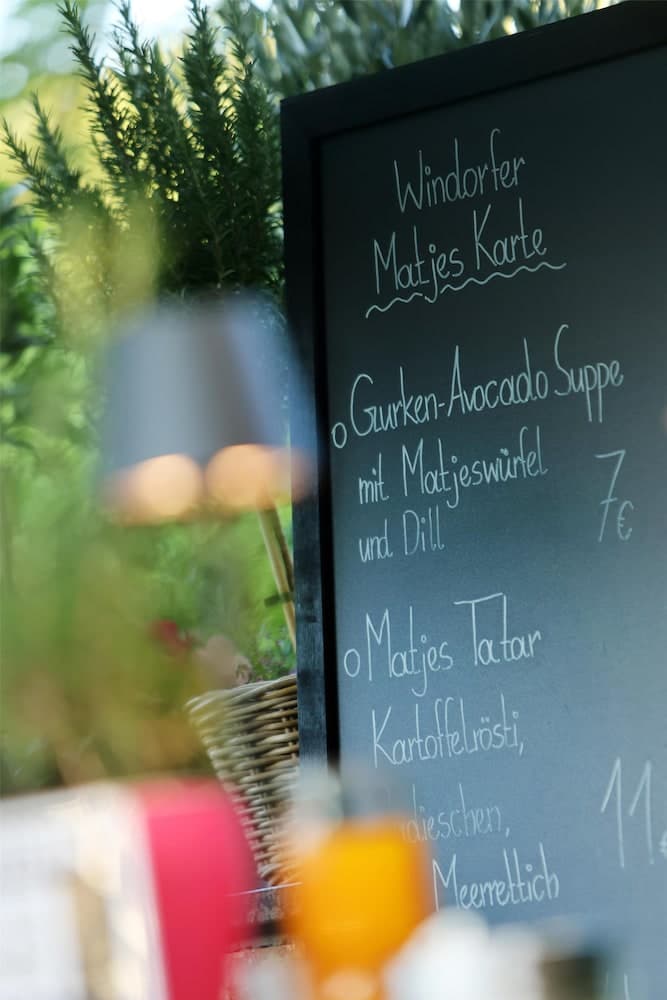 Windorfer
Matjes Karte
o Gurken-Avocado Suppe
mit Matjeswürfel
und Dill
7€
o Matjes Tatar
Kartoffelrösti,
dieschen,
11€
Meerrettich